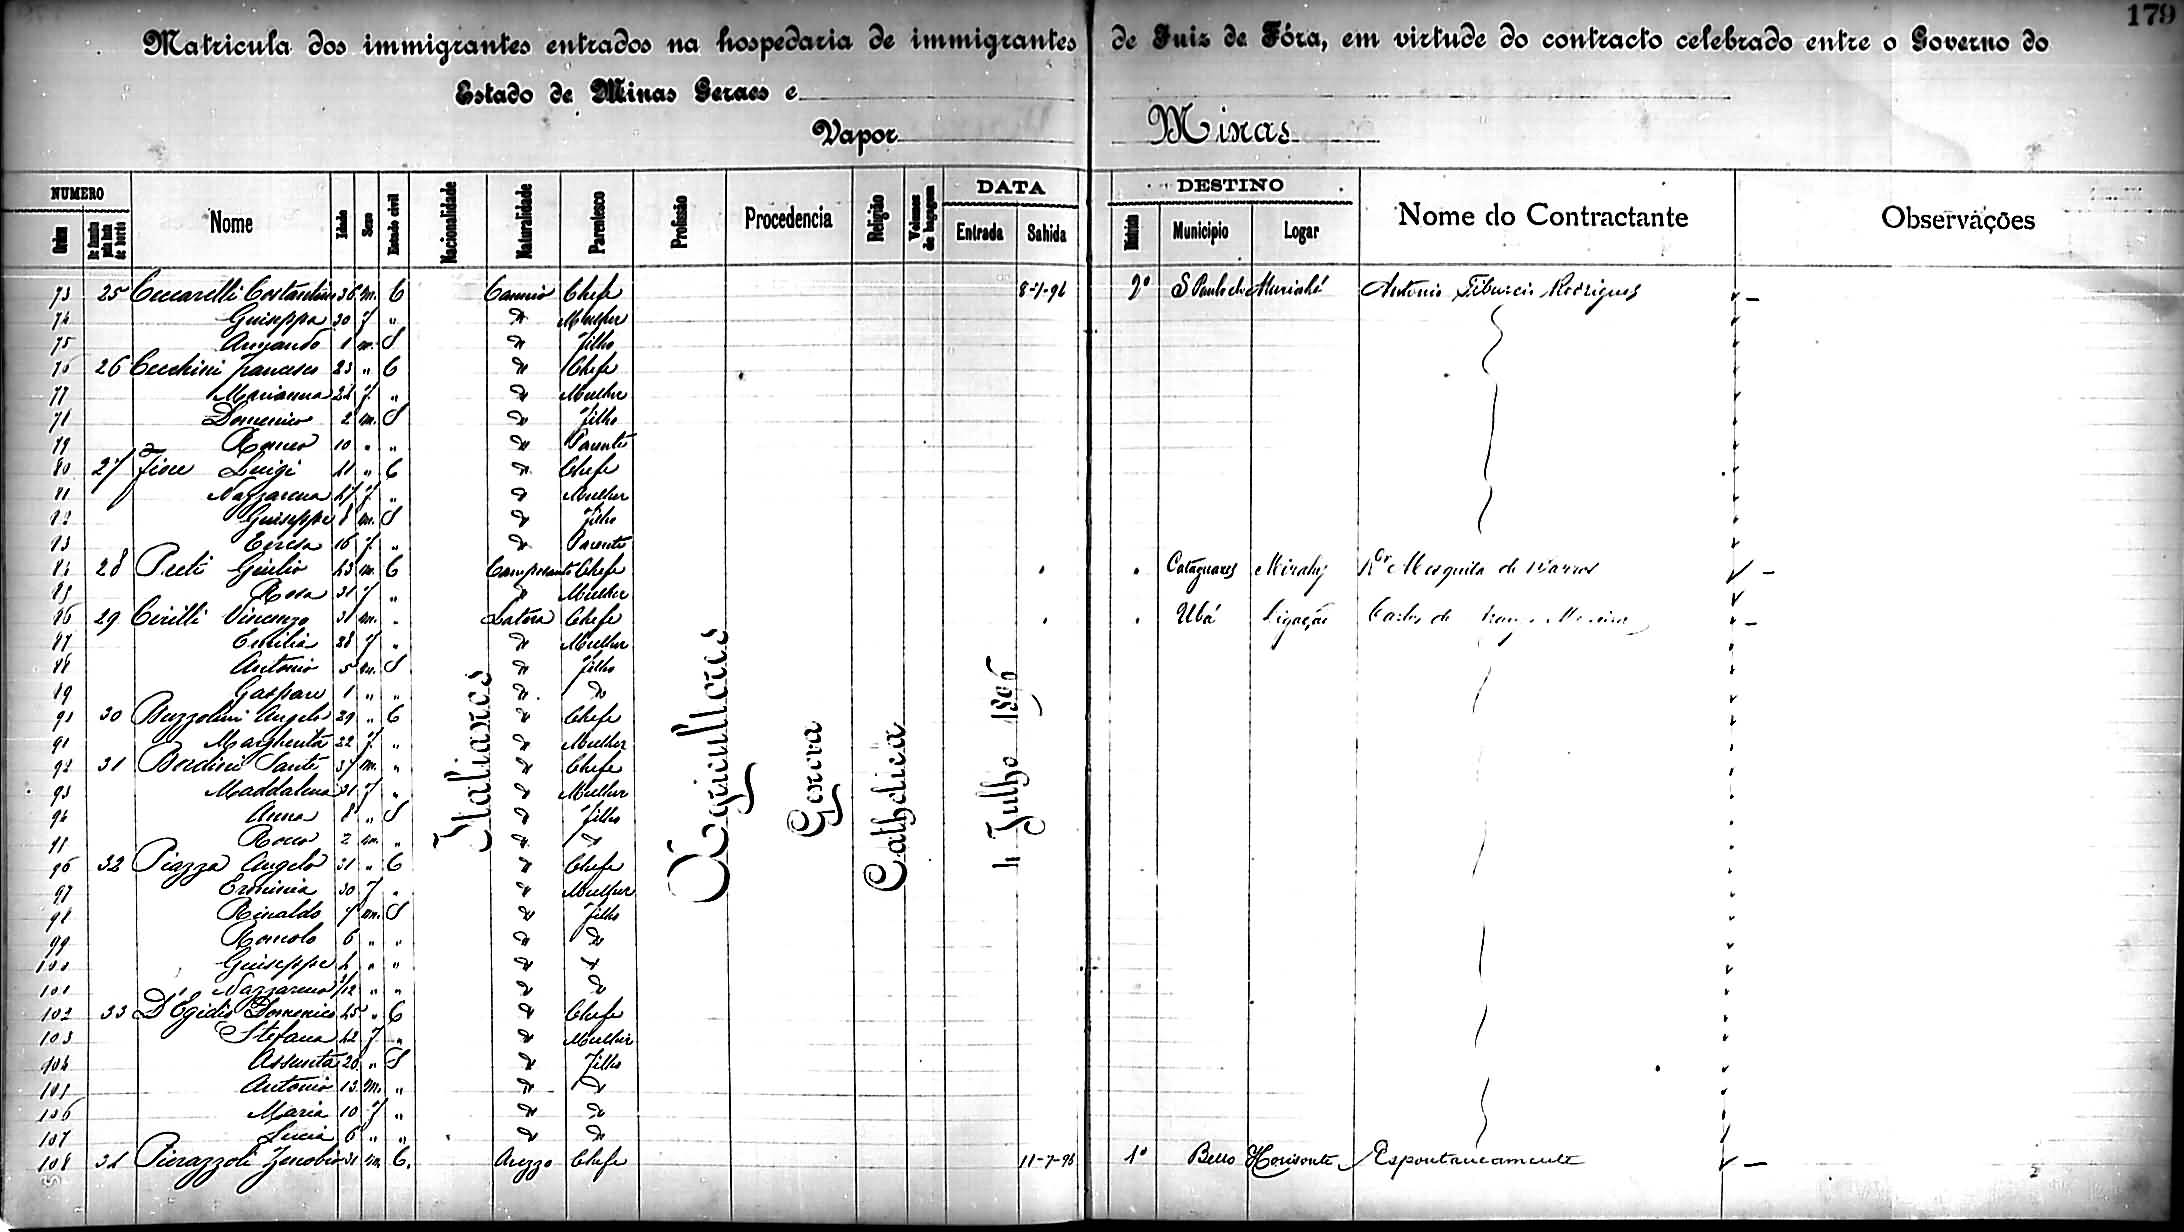 179
Matricula dos immigrantes entrados na hospedaria de immigrantes de Juiz de Fóra, em virtude do contracto celebrado entre o Governo do
Estado de Minas Geraes e
Vapor Minas
NUMERO DATA DESTINO
Ordem De familia pela lista de bordo Nome Idade Sexo Estado civil Nacionalidade Naturalidade Parentesco Profissão Procedencia Religião Volumes de bagagem Entrada Sahida Districto Municipio Logar Nome do Contractante Observações
Italianos
Agricultores
Genova
Catholica
4 Julho 1896
73 25 Ceccarelli Costantino 36 m. C Chefe 8-7-96 2º S Paulo do Muriahé Antonio Tiburcio Rodrigues
74 Guiseppa 30 f " Do Mulher
75 Armando 1 m. S Do Filho
76 26 Cecchini Francesco 23 " C Do Chefe
77 Marianna 24 f. " Do Mulher
78 Domenico 2 m. S Do Filho
79 Romeo 10 " " Do Parente
80 27 Fiore Luigi 41 " C Do Chefe
81 Nazzarena 47 f. " Do Mulher
82 Guiseppe 8 m. S Do Filho
83 Teresa 16 f. " Do Parente
84 28 Preti Giulio 43 m. C Chefe " " Cataguazes Mirahy Mesquita de Barros
85 Rosa 31 f " Do Mulher
86 29 Cirilli Vincenzo 31 m. " Chefe " " Ubá Ligação Carlos de
87 Emilia 28 f " Do Mulher
88 Antonio 5 m. S Do Filho
89 Gaspare 1 " " Do Do
90 30 Buzzolini Angelo 29 " C Do Chefe
91 Margherita 22 f. " Do Mulher
92 31 Bordini Santi 37 m. " Do Chefe
93 Maddalena 31 f " Do Mulher
94 Anna 8 " S Do Filho
95 Rocco 2 m. " Do Do
96 32 Piazza Angelo 31 " C Do Chefe
97 Erminia 30 f " Do Mulher
98 Rinaldo 7 m. S Do Filho
99 Romolo 6 " " Do Do
100 Guiseppe 4 " " Do Do
101 Nazzareno /12 " " Do Do
102 33 D'Egidio Domenico 45 " C Do Chefe
103 Stefana 42 f " Do Mulher
104 Assunta 20 " S Do Filho
105 Antonio 13 m. " Do Do
106 Maria 10 f " Do Do
107 Lucia 6 " " Do Do
108 34 Pierazzoli Zenobio 31 m. C. Arezzo Chefe 11-7-96 1º Bello Horisonte Espontaneamente